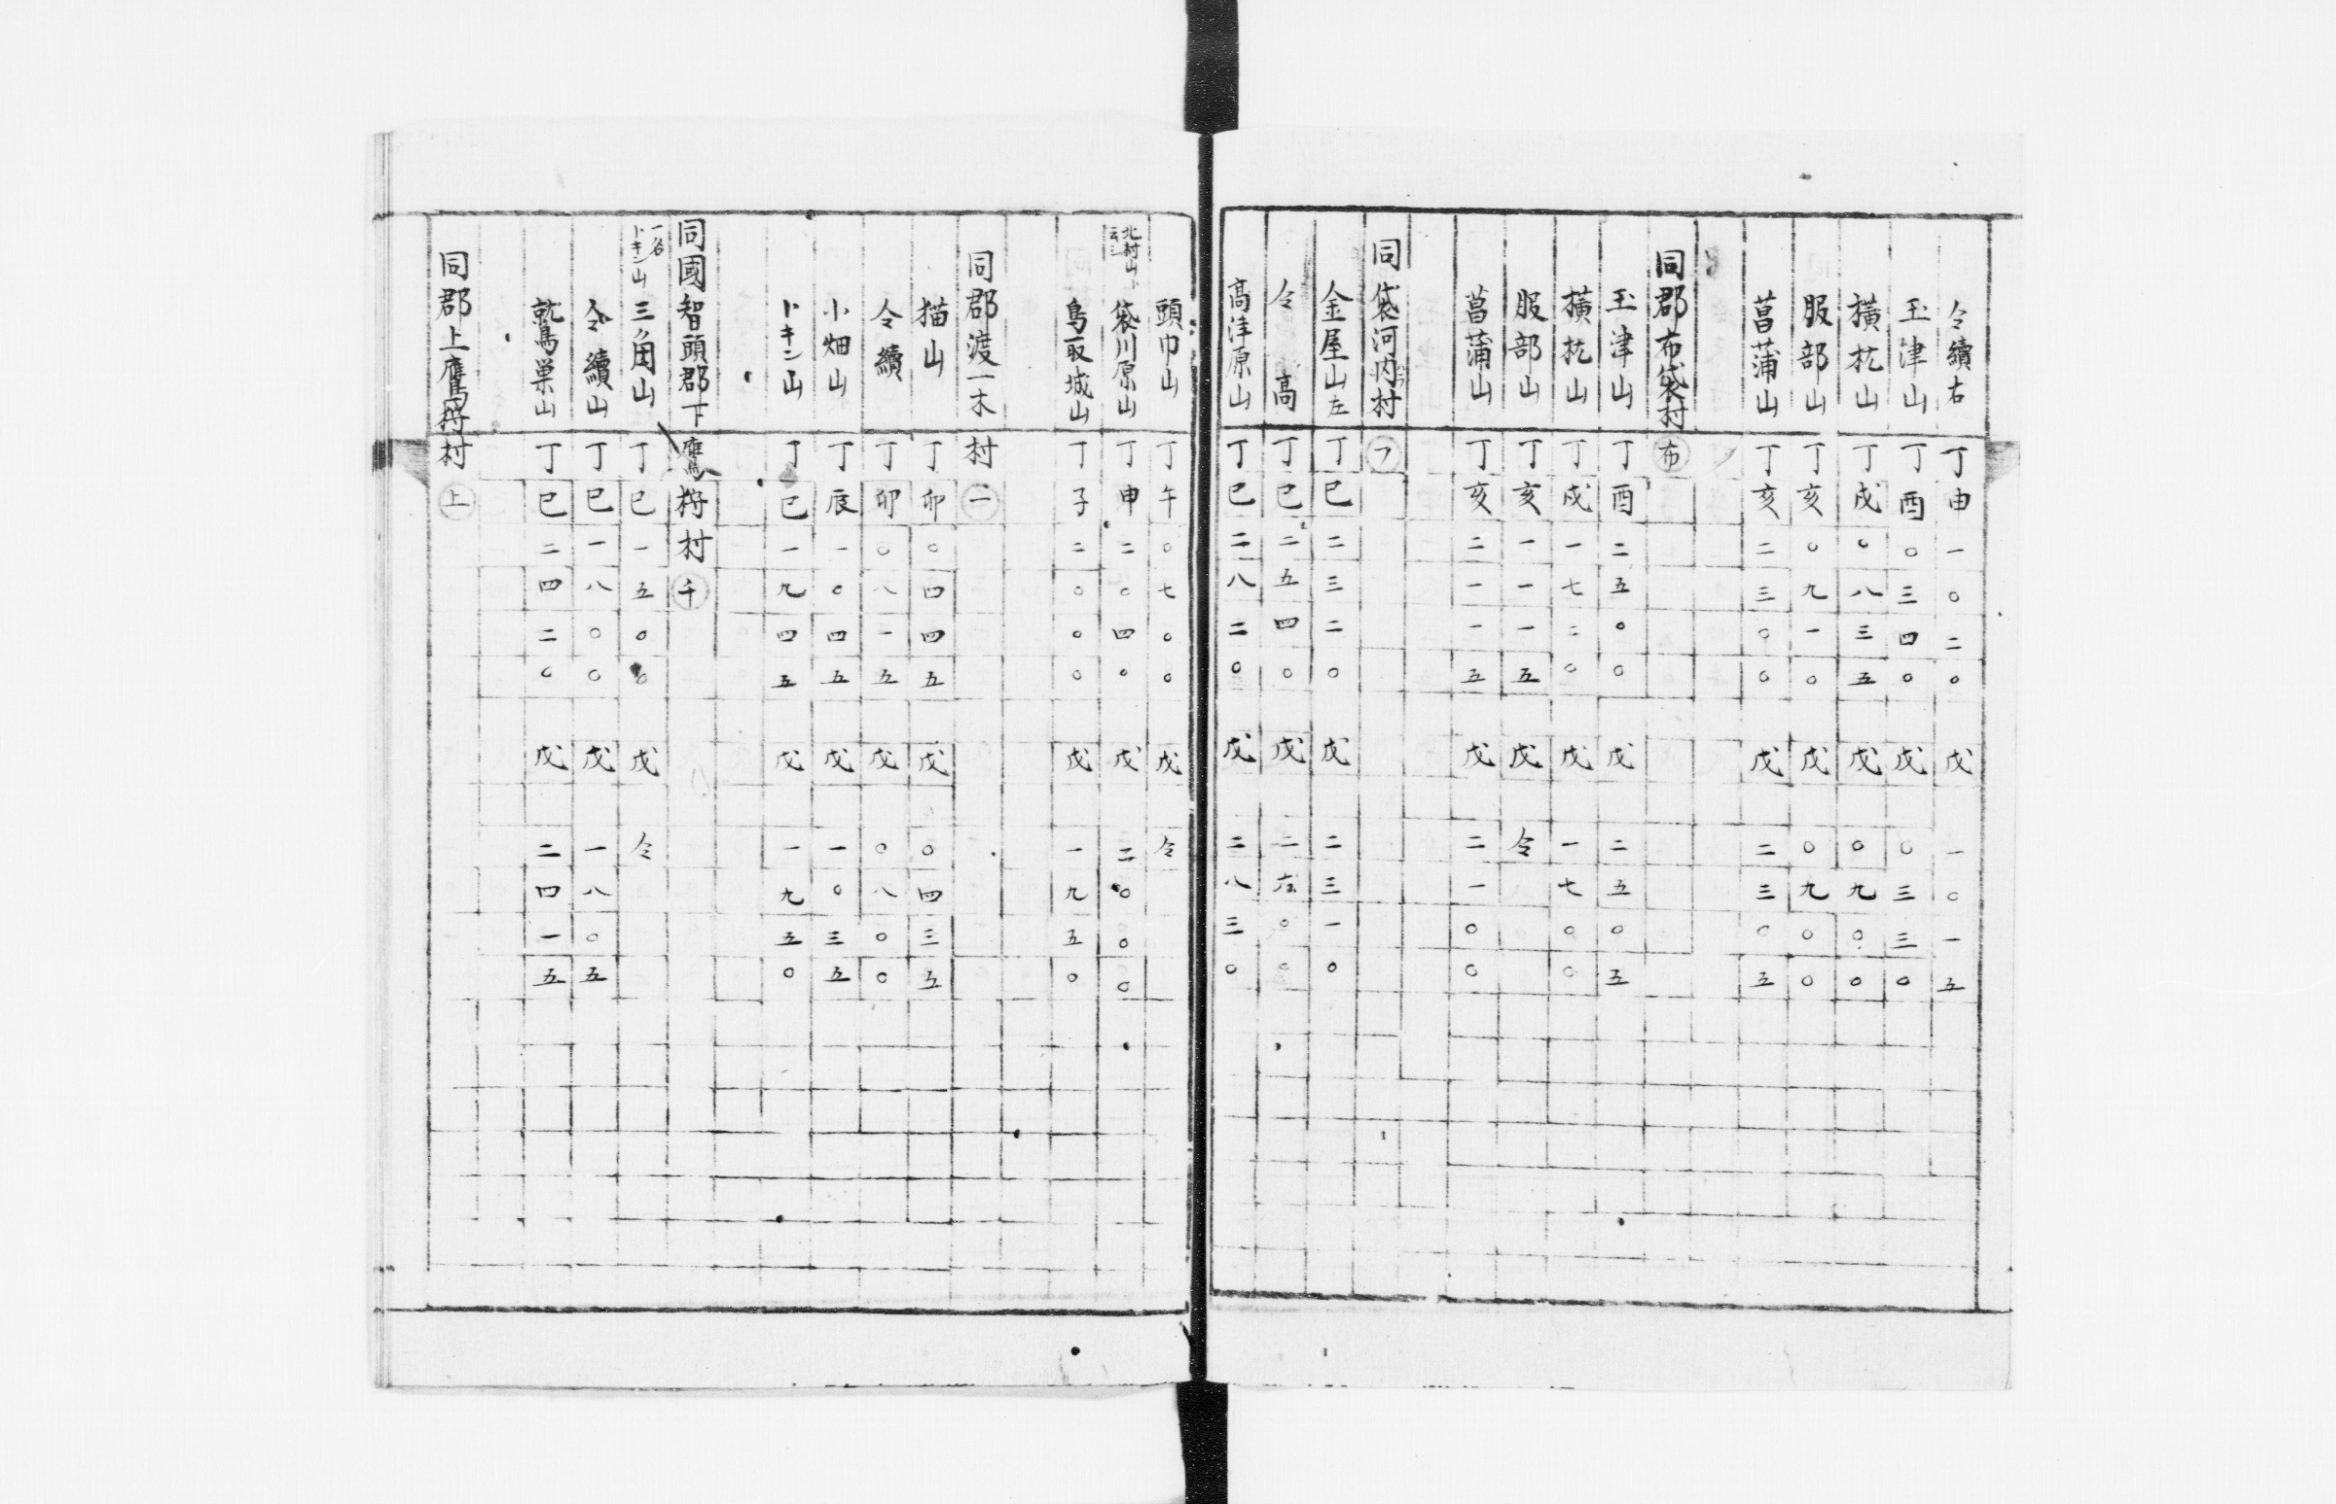 仝續右 丁申一〇二〇 戊 一〇一五
玉津山 丁酉〇三四〇 戊 〇三三〇
横杭山 丁戌〇八三五 戊 〇九〇〇
服部山 丁亥〇九一〇 戊 〇九〇〇
菖蒲山 丁亥二三〇〇 戊 二三〇五
同郡布袋村 布
玉津山 丁酉二五〇〇 戊 二五〇五
横杭山 丁戌一七二〇 戊 一七〇〇
服部山 丁亥一一一五 戊 仝
菖蒲山 丁亥二一一五 戊 二一〇〇
同 袋河内村 フ
金屋山左 丁巳二三二〇 戊 二三一〇
仝 高 丁巳二五四〇 戊 二六〇〇
高津原山 丁巳二八二〇 戊 二八三〇
頭巾山 丁午〇七〇〇 戊 仝
北村山ト云
袋川原山 丁申二〇四〇 戊 二〇〇〇
鳥取城山 丁子二〇〇〇 戊 一九五〇
同郡渡一木村 一
猫山 丁卯〇四四五 戊 〇四三五
仝續 丁卯〇八一五 戊 〇八〇〇
小畑山 丁辰一〇四五 戊 一〇三五
トキン山 丁巳一九四五 戊 一九五〇
同國智頭郡下鷹狩村 千
一名トキン山
三角山 丁巳一五〇〇 戊 仝
仝續山 丁巳一八〇〇 戊 一八〇五
鷲巣山 丁巳二四二〇 戊 二四一五
同郡上鷹狩村 上